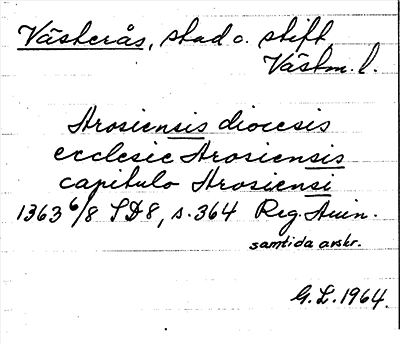 Västerås, stad o. stift,
Västm. l.
Arosiensis diocesis
ecclesie Arosiensis
capitulo Arosiensi
1363 6/8 SD8, s. 364 Reg. Avin.
samtida avskr.
G.L. 1964.